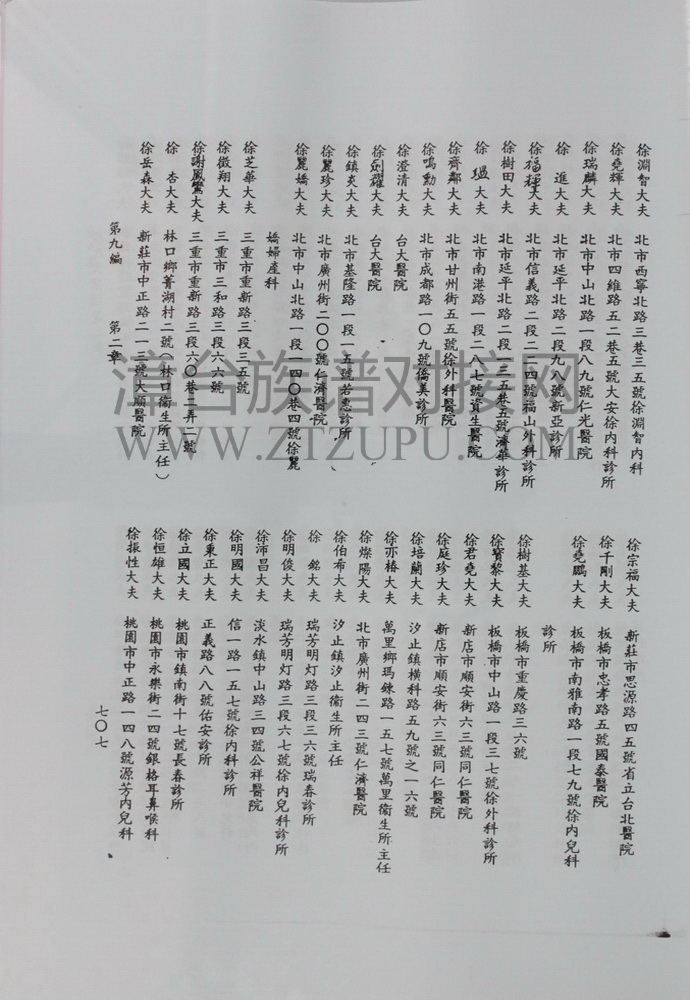 徐淵智大夫 北市西寧北路三巷三五號徐淵智內科
徐堯輝大夫 北市四維路五二巷五號大安徐內科診所
徐瑞麟大夫 北市中山北路一段八九號仁光醫院
徐 進大夫 北市延平北路二段九八號新亞診所
徐福輝大夫 北市信義路二段二四號福山外科診所
徐樹田大夫 北市延平北路二段二三五巷五號濟華診所
徐 塭大夫 北市南港路一段二八七號資生醫院
徐齊鄰大夫 北市甘州街五五號徐外科醫院
徐鳴勳大夫 北市成都路一〇九號僑美診所
徐澄清大夫 台大醫院
徐劍耀大夫 台大醫院
徐鎮炎大夫 北市基隆路一段一五號若惠診所
徐麗珍大夫 北市廣州街二〇〇號仁濟醫院
徐麗嬌大夫 北市中山北路一段一四〇巷四號徐麗
嬌婦產科
徐芝華大夫 三重市重新路三段三五號
徐微翔大夫 三重市三和路三段六六號
徐謝鳳鸞大夫 三重市重新路三段六〇巷二弄二號
徐 杏大夫 林口鄉菁湖村二號(林口衞生所主任)
徐岳森大夫 新莊市中正路二一二號大順醫院
第九編 第二章
徐宗福大夫 新莊市思源路四五號省立台北醫院
徐千剛大夫 板橋市忠孝路五號國泰醫院
徐堯鵬大夫 板橋市南雅南路一段七九號徐內兒科
診所
徐樹基大夫 板橋市重慶路三六號
徐寶黎大夫 板橋市中山路一段三七號徐外科診所
徐君堯大夫 新店市順安街六三號同仁醫院
徐庭珍大夫 新店市順安街六三號同仁醫院
徐培蘭大夫 汐止鎮橫科路五九號之一六號
徐亦椿大夫 萬里鄉瑪鍊路一五七號萬里衞生所主任
徐燦陽大夫 北市廣州街二四三號仁濟醫院
徐伯希大夫 汐止鎮汐止衞生所主任
徐 銘大夫 瑞芳明灯路三段三六號瑞春診所
徐明俊大夫 瑞芳明灯路三段六七號徐內兒科診所
徐沛昌大夫 淡水鎮中山路三四號公祥醫院
徐明國大夫 信一路一五七號徐內科診所
徐秉正大夫 正義路八八號佑安診所
徐立國大夫 桃園市鎮南街十七號長春診所
徐恒雄大夫 桃園市永樂街二四號銀格耳鼻喉科
徐振性大夫 桃園市中正路一四八號源芳內兒科
七〇七
台族谱对接网
WWW.ZTZUPU.COM